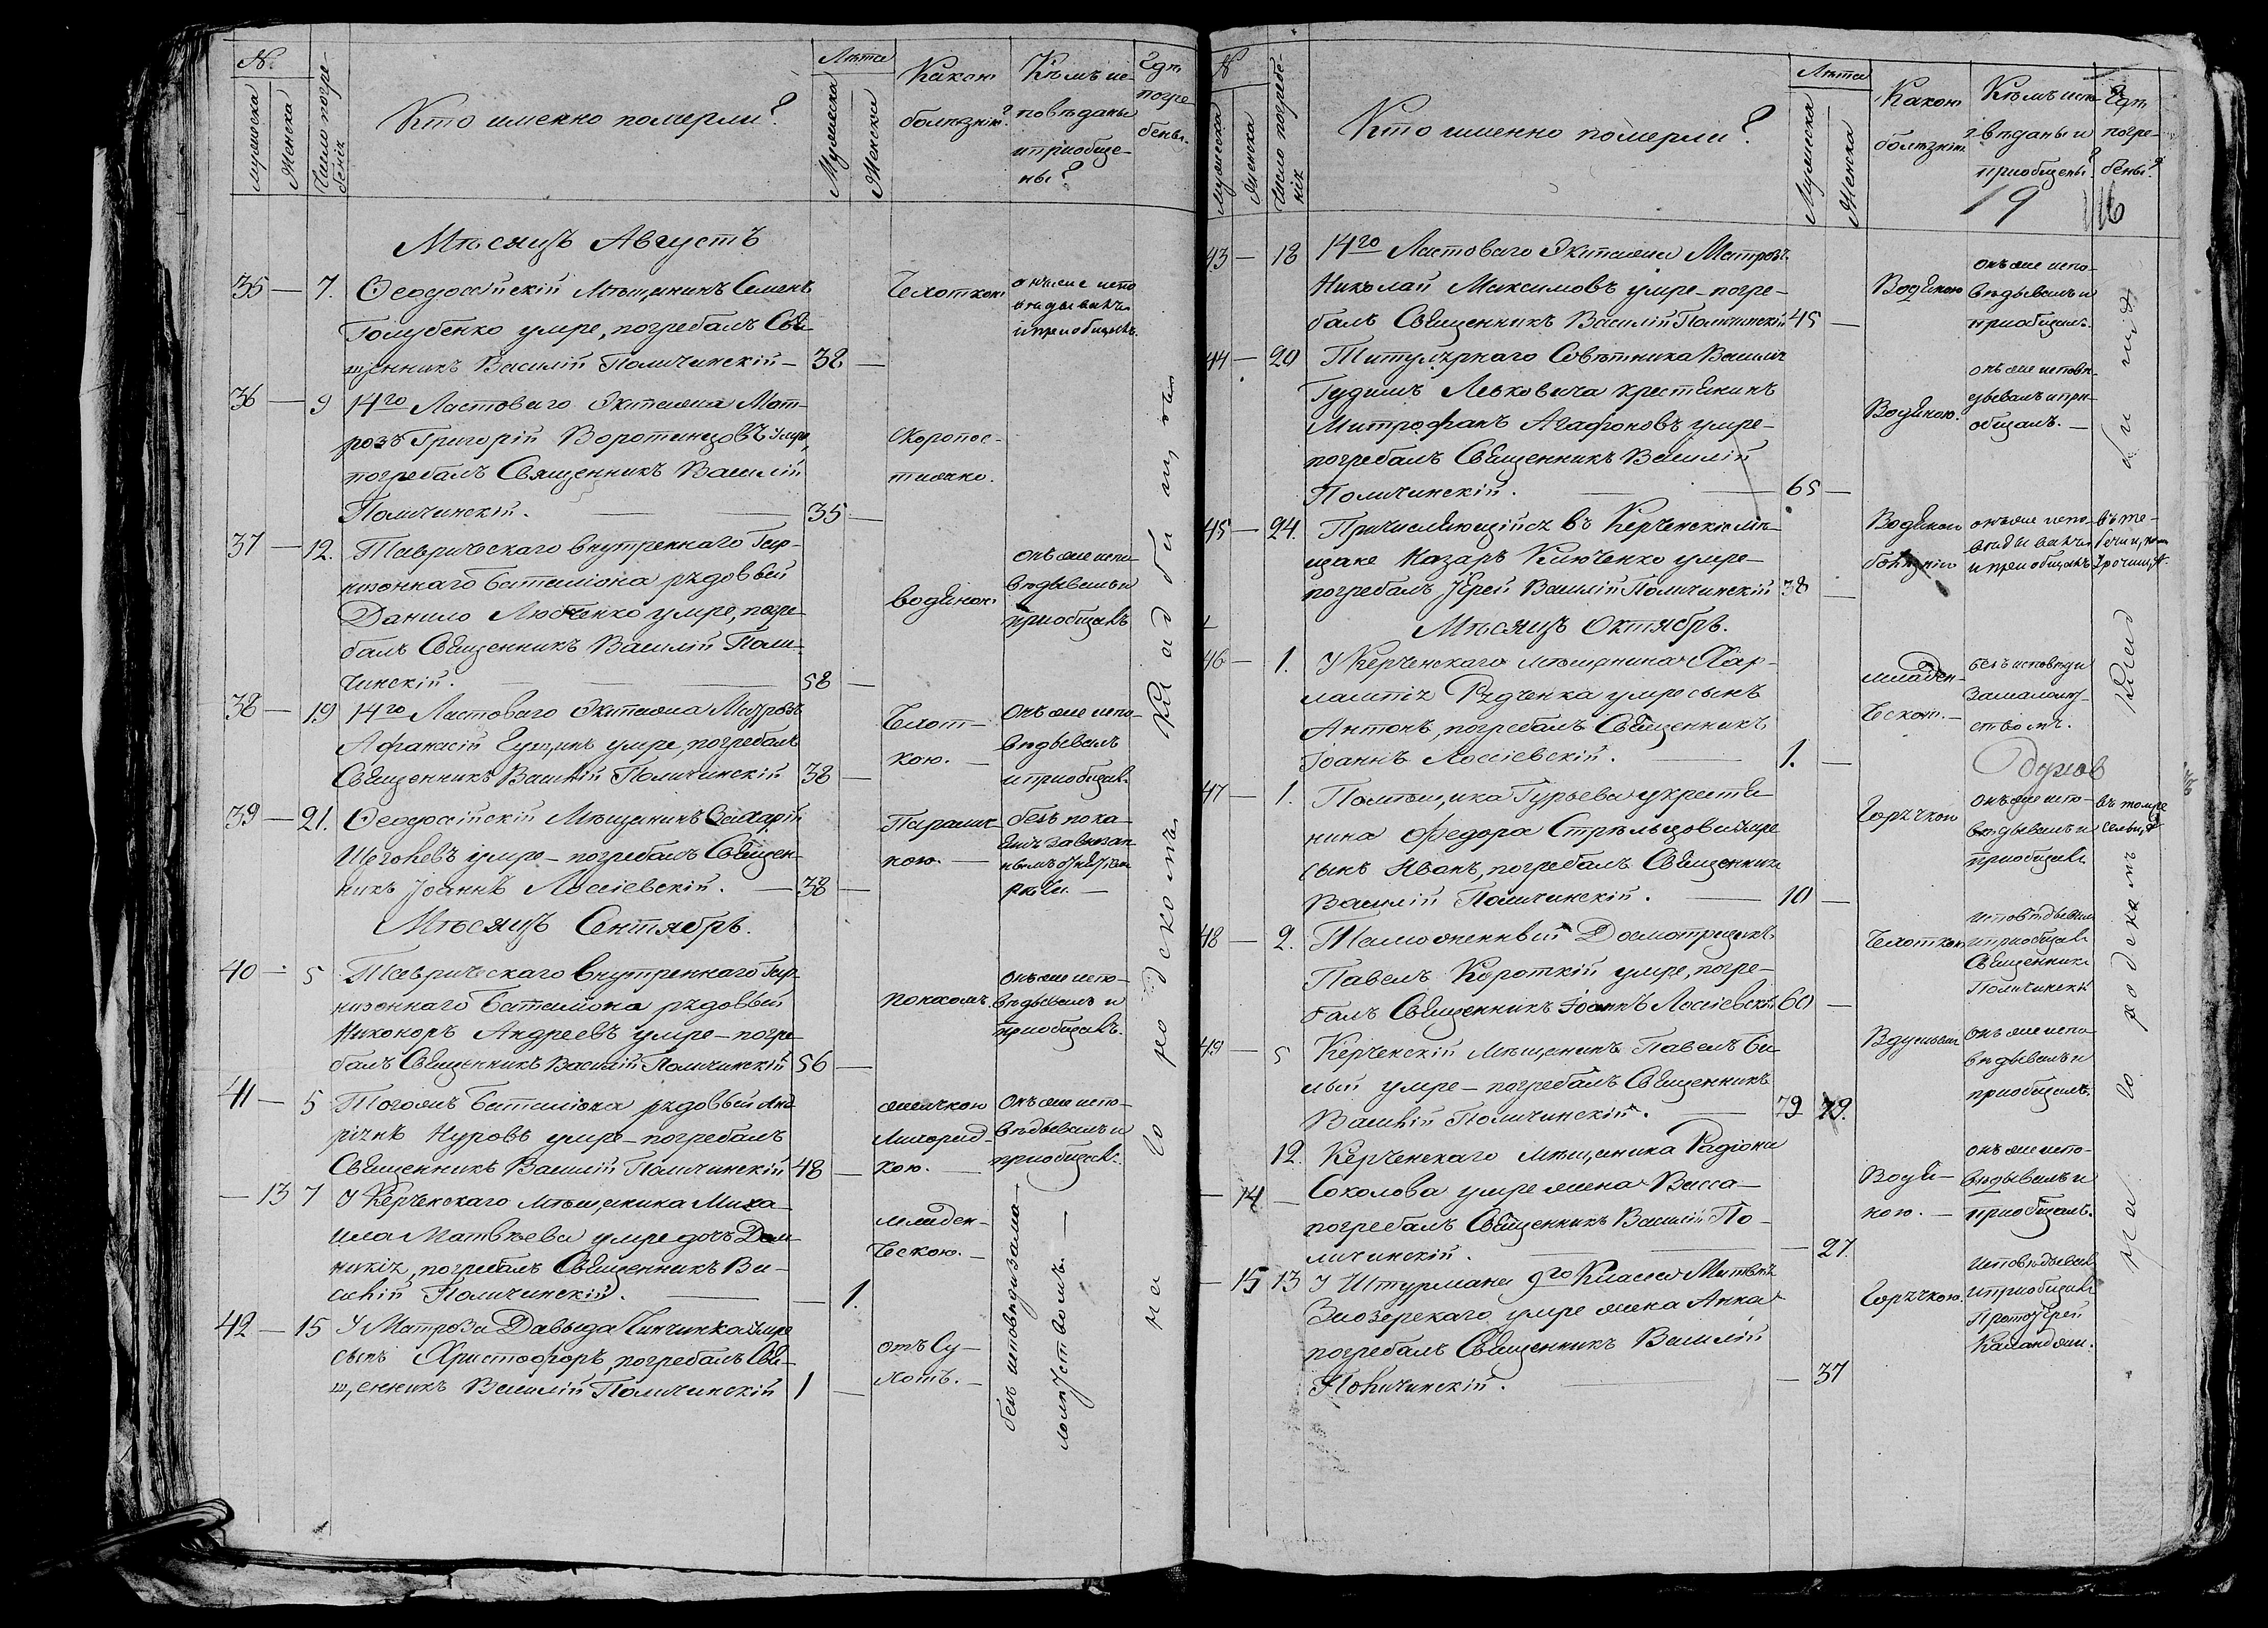 №
мужеска
женска
Число погре-
бенія
Кто именно померли?
Лѣта
Мужеска
Женска
Какою
болѣзнію?
Кѣмъ ис-
повѣданы
и приобще-
ны?
Гдѣ
погре-
бены.
Мѣсяцъ Августъ
35 — 7. Ѳеодосійскій Мѣщанинъ Семенъ
Голубенко умре, погребалъ Свя-
щенникъ Василій Поличинскій — 38 —
Чехоткою
онъ же испо
вѣдывалъ
и приобщалъ.
36 — 9 14го Ластоваго Экипажа Мат-
розъ Григорій Воротынцовъ умре,
погребалъ Священникъ Василій
Поличинскій. — 35 —
Скоропос-
тижно.
37 — 12. Таврическаго внутренняго Гар-
низоннаго баталіона рядовый
Данило Любченко умре, погре-
балъ Священникъ Василій Поли-
чинскій. — 58 —
водяною
онъ же испо-
вѣдывалъ и
приобщалъ
38 — 19 14го Ластоваго Экипажа Матрозъ
Афанасій умре, погребалъ
Священникъ Василій Поличинскій 38 —
Чехот-
кою. —
Онъ же испо-
вѣдывалъ
и приобщалъ
39 — 21. Ѳеодосійскій Мѣщанинъ Захарій
Щеголевъ умре — погребалъ Священ-
никъ Іоаннъ Лосіевскій. — 38 —
Паралич-
ною —
безъ пока-
рѣчи. —
Мѣсяцъ Сентябрь.
40 — 5 Таврическаго внутренняго Гар-
низоннаго баталіона рядовый
Никоноръ Андреевъ умре — погре
балъ Священникъ Василій Поличинскій 56 —
поносомъ
Онъ же испо-
вѣдывалъ и
приобщалъ.
41 — 5 Тогожъ баталіона рядовый Анд
ріянъ Нуровъ умре — погребалъ
Священникъ Василій Поличинскій 48 —
желчною
Лихорад-
кою. —
Онъ же испо-
вѣдывалъ и
приобщалъ.
— 13 7 У Керченскаго мѣщанина Миха-
ила Матвѣева умре дочь Дом-
никія, погребалъ Священникъ Ва-
силій Поличинскій. — 1.
младен-
ческою. —
42 — 15 У Матроза Давыда умре
сынъ Христофоръ, погребалъ Свя-
щенникъ Василій Поличинскій 1 —
отъ Су-
хотъ. —
безъ исповѣди за ма-
лолѣтствомъ. —
на городскомъ кладбищѣ
№
мужеска
женска
Число погребе-
нія
Кто именно померли?
Лѣта
Мужеска
Женска
Какою
болѣзнію
Кѣмъ испо-
вѣданы и
приобщены?
Гдѣ
погре-
бены?
19
116
43 — 18 14го Ластоваго Экипажа Матрозъ
Николай Максимовъ умре — погре-
балъ Священникъ Василій Поличинскій 45 —
Водяною
онъ же испо-
вѣдывалъ и
приобщалъ.
44 — 20 Титулярнаго Совѣтника Василія
Гудимъ Левковича крестянинъ
Митрофанъ Агафоновъ умре —
погребалъ Священникъ Василій
Поличинскій. — 65 —
Водяною.
онъ же исповѣ-
дывалъ и при-
общалъ. —
45 — 24. Причисляющійся въ Керченскіе мѣ-
щане Назаръ Ключенко умре —
погребалъ Іерей Василій Поличинскій 38 —
Водяною
болѣзнію
онъ же испо-
вѣдывалъ
и приобщалъ
Мѣсяцъ Октябрь.
46 — 1. У Керченскаго мѣщанина Хар-
лампія Рудченка умре сынъ
Антонъ, погребалъ Священникъ
Іоаннъ Лосіевскій. — 1. —
младен-
ческою. —
безъ исповѣди
за малолѣт-
ствомъ.
47 — 1. Помѣщика Гурьева у крестя-
нина Федора Стрѣльцова умре
сынъ Иванъ, погребалъ Священникъ
Василій Поличинскій. — 10 —
горячкою
онъ же испо-
вѣдывалъ и
приобщалъ
въ томже
48 — 2. Таможенный Досмотрщикъ
Павелъ Короткій умре, погре-
балъ Священникъ Іоаннъ Лосіевскій 60 —
Чехоткою
исповѣдывалъ
и приобщалъ
Священникъ
Поличинскій
49 — 5 Керченскій Мѣщанинъ Павелъ Би-
лый умре — погребалъ Священникъ
Василій Поличинскій. — 79 79.
Онъ же испо-
вѣдывалъ и
приобщалъ.
12. Керченскаго мѣщанина Радіона
— 14 — Соколова умре жена Васса —
погребалъ Священникъ Василій По-
личинскій. — 27.
Водя-
ною. —
онъ же испо-
вѣдывалъ и
приобщалъ.
— 15 13 У Штурмана 9го Класса Матвѣя
Заозерскаго умре жена Анна
погребалъ Священникъ Василій
Поличинскій. — 37
Горячкою.
исповѣдывалъ
и приобщалъ
Протоіерей
на городскомъ кладбищѣ